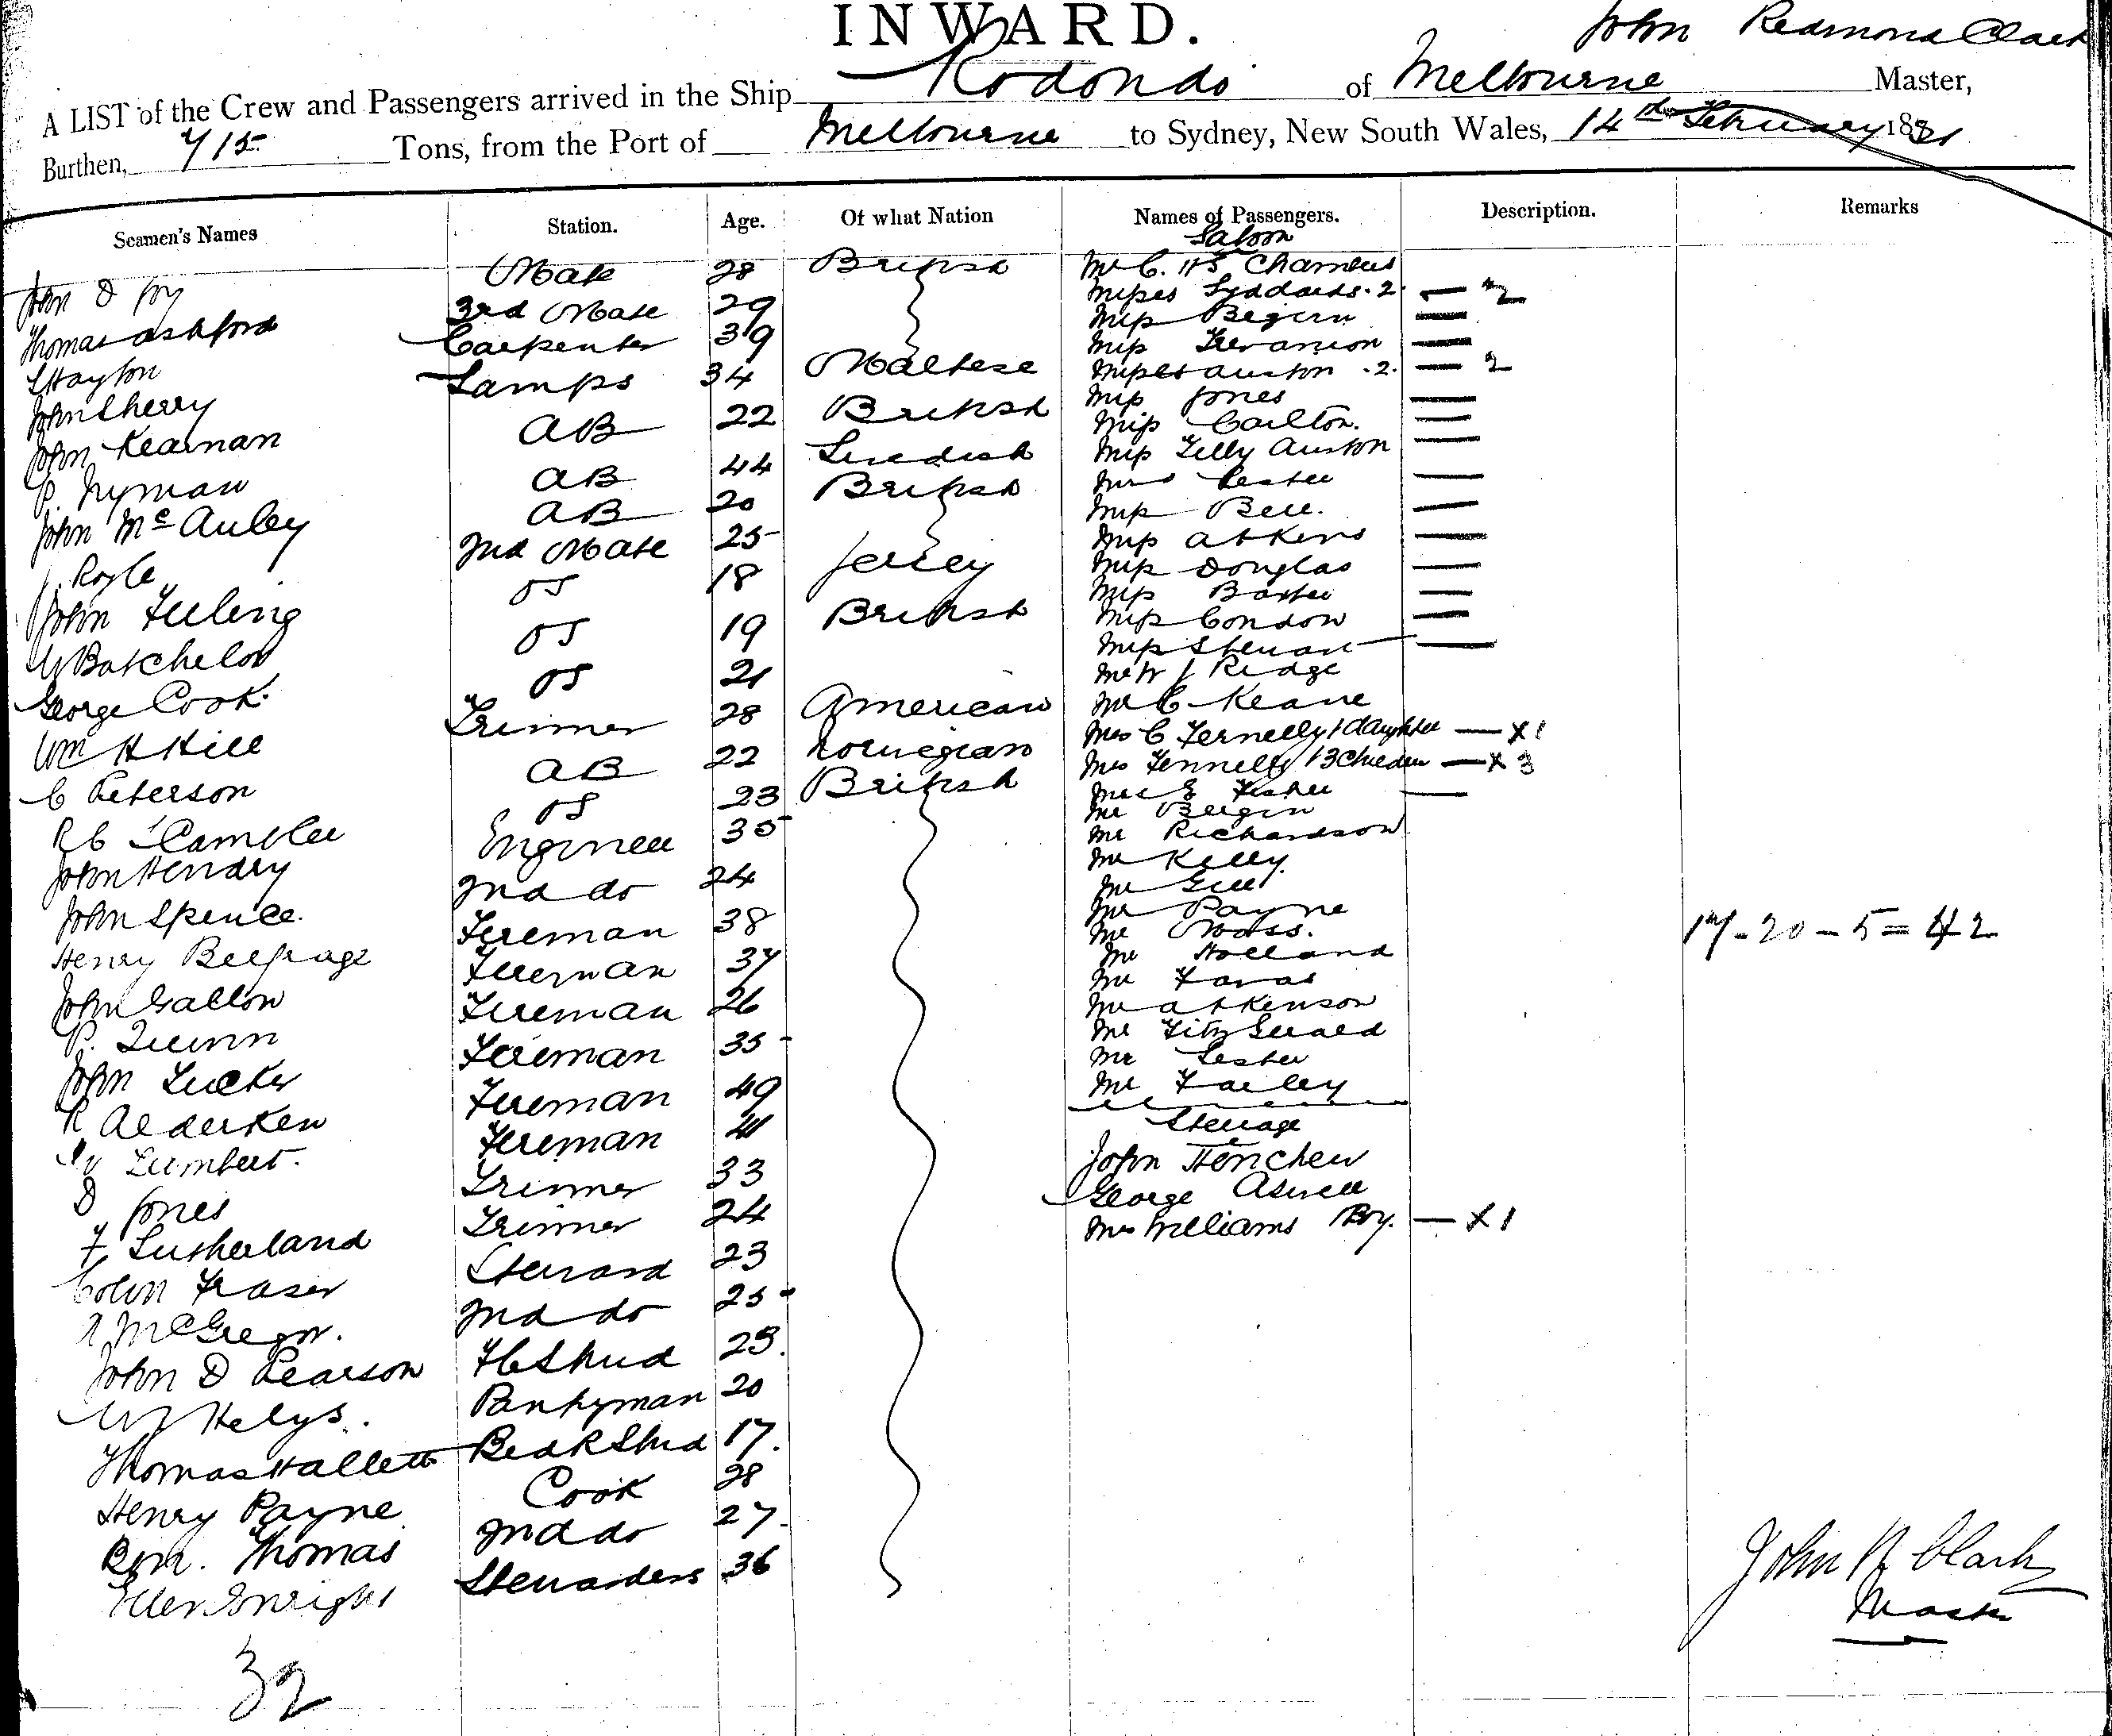 INWARD.
John Redmond Clark
A LIST of the Crew and Passengers arrived in the Ship Rodondo of Melbourne Master,
Burthen, 715 Tons, from the Port of Melbourne to Sydney, New South Wales, 14th February 1881
Seamen's Names Station. Age. Of what Nation Names of Passengers. Description. Remarks
Saloon
John D Joy Mate 28 British Mr C. Chambers
Thomas Ashford 3rd Mate 29 Misses Syddards. 2. — 2
Hayton Carpenter 39 Miss Begern —
John Sherry Lamps 34 Maltese Miss Trevanion —
John Kearnan AB 22 British Misses Auston . 2. — 2
P. Nyman AB 44 Swedish Miss Jones —
John McAuley AB 20 British Miss Carlton. —
J. Royle 2nd Mate 25 Miss Tilly Auston —
John Feeling OS 18 Jersey Mrs Lester —
W Batchelor OS 19 British Miss Bell. —
George Cook. OS 21 Miss Atkins —
Wm H Hill Trimmer 28 American Miss Douglas —
C Peterson AB 22 Norwegian Miss Baxter —
R C Scambler OS 23 British Miss Condon —
John Hendry Engineer 30 Miss Stewart —
John Spence. 2nd do 24 Mr W J Ridge
Henry Belfrage Fireman 38 Mr C Keane
John Gallon Fireman 37 Mrs C Fernelly 1 daughter — X 1
P. Quinn Fireman 26 Mrs Fennelly 1 3 Children — X 3
John Tucker Fireman 35 E Fisher —
R Alderken Fireman 49 Mr Bergin
W Lambert. Fireman 41 Mr Richardson
D Jones Trimmer 33 Mr Kelly.
F. Sutherland Trimmer 24 Mr Gill
Colin Fraser Steward 23 Mr Payne
A McGregor. 2nd do 25 Mr Moss.
John D Pearson F C Stwd 23. Mr Holland
W J Helys. Pantryman 20 Mr Favas
Thomas Hallett Bed R Stwd 17. Mr Atkinson
Henry Payne Cook 28 Mr Fitz Gerald
Bem. Thomas 2nd do 27. Mr Lester
Ellen Enright Stewardess 36 Mr Farley
Steerage
John Henchew
George Aswell
Mrs Williams Boy. — X 1
17 - 20 - 5 = 42
John R Clark
Master
32